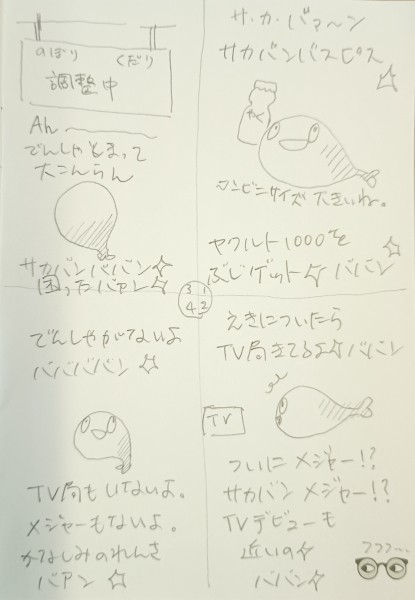 サ・カ・バァ〜ン
サカバンバスピス☆
ヤク
コンビニサイズ 大きいね。
ヤクルト1000を
ぶじゲット☆ ババン☆
えきについたら
TV局きてるよ☆ババン
TV
ついに メジャー!?
サカバン メジャー!?
TVデビューも
近いの☆
ババン☆
フフフ…
のぼり くだり
調整中
Ah
でんしゃとまって
大こんらん
サカバンババン☆
困ったバァン☆
3 1
4 2
でんしゃがでないよ
ババババン☆
TV局もいないよ。
メジャーもないよ。
かなしみのれんさ
バアン☆